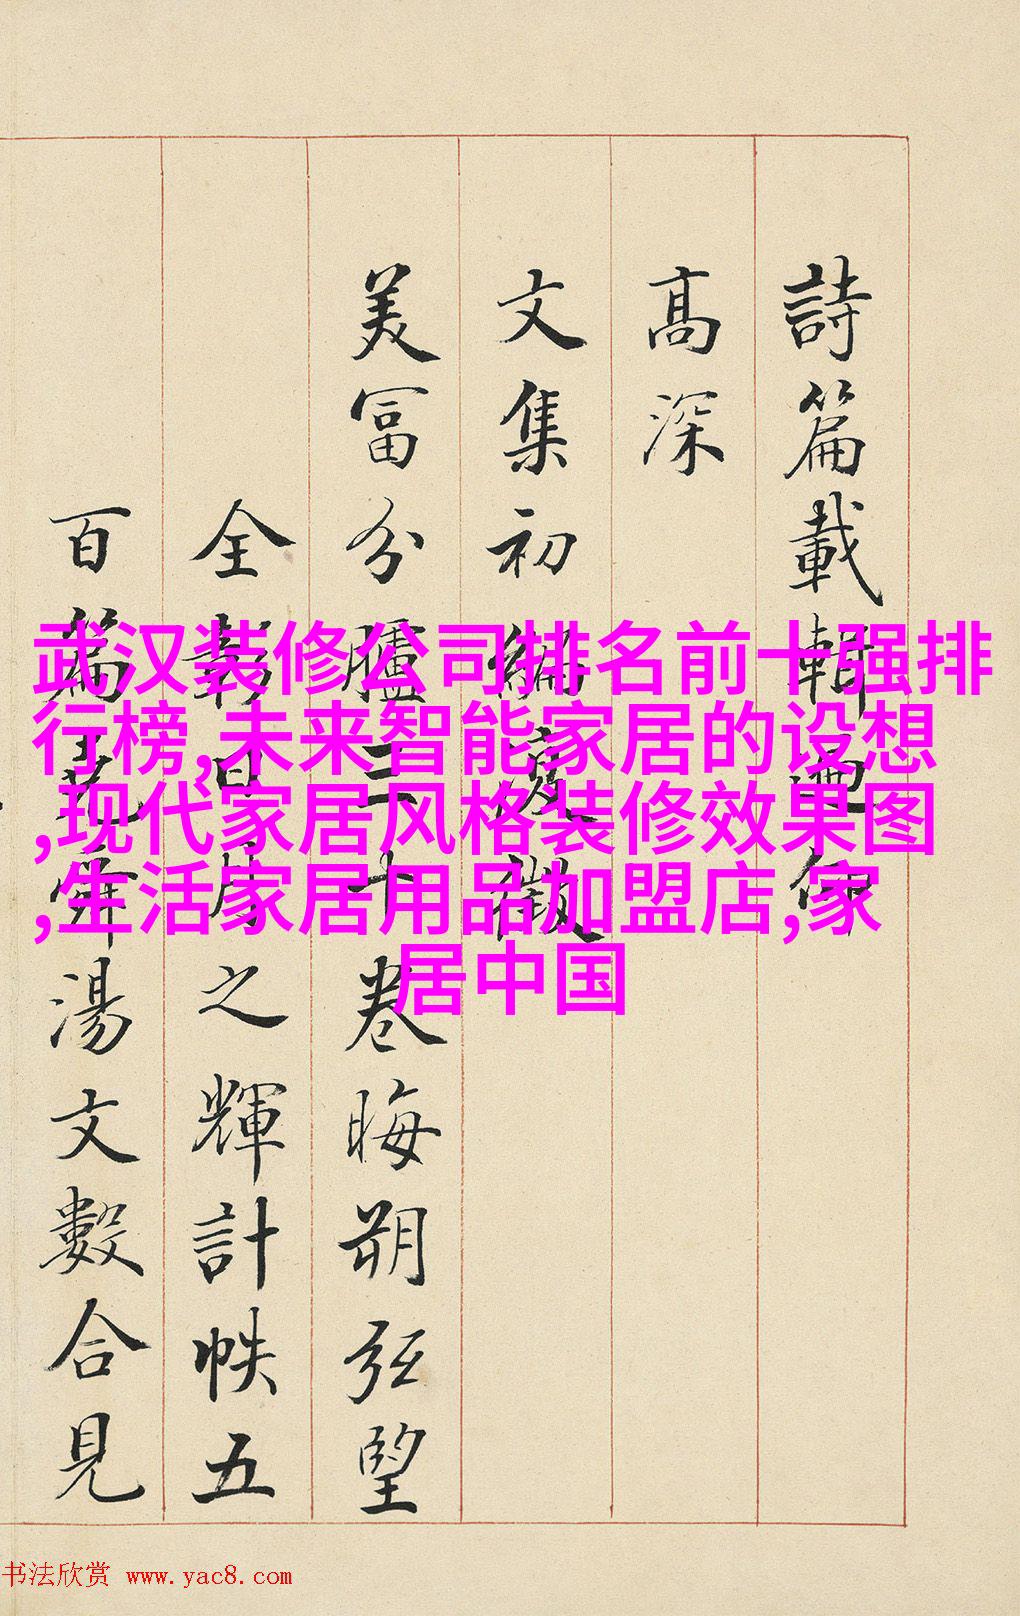 詩篇載輯
髙深
文集初編
美冨分臚三十卷晦朔弦望
全彰日月之輝計帙五
百篇堯舜湯文數合見
武汉装修公司排名前十强排
行榜,未来智能家居的设想
,现代家居风格装修效果图
,生活家居用品加盟店,家
居中国
书法欣赏 www.yac8.com